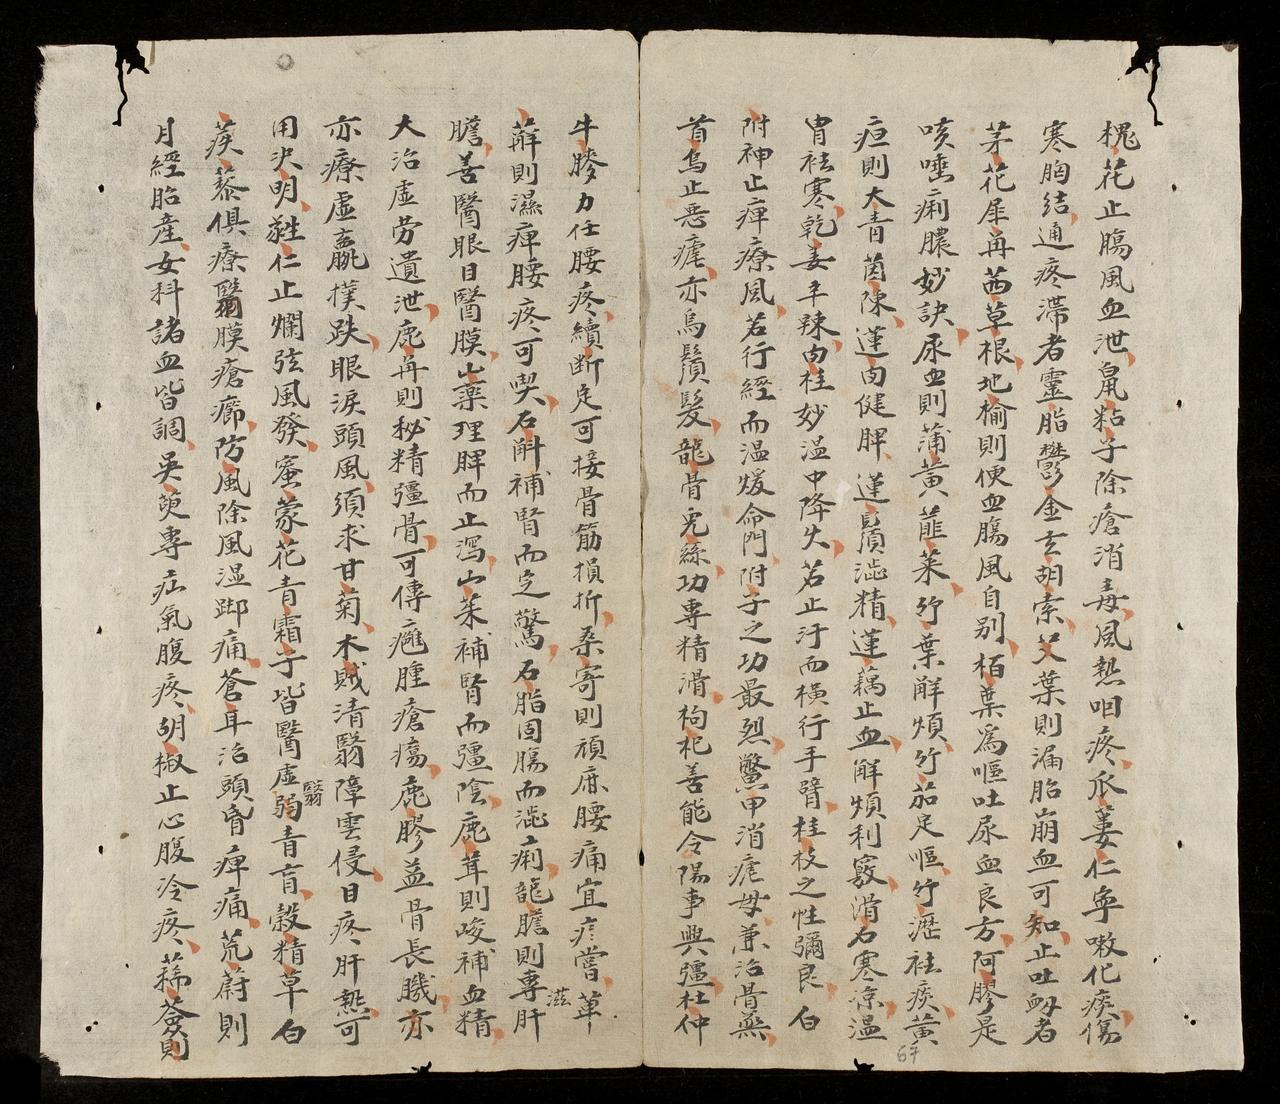 槐花止腸風血泄鼠粘子除瘡消毒風熱咽疼瓜蔞仁寧嗽化痰傷
寒胸結通疼滯者靈脂欝金玄胡索艾葉則漏胎崩血可知止吐衂者
茅花犀再茜草根地榆則便血腸風自别栢葉爲嘔吐尿血良方阿膠是
咳唾痢膿妙訣尿血則蒲黄韮菜竹葉解煩竹茹足嘔竹瀝祛痰黄
疸則大青茵陳蓮肉健脾蓮鬚澁精蓮藕止血解煩利竅滑石寒凉温
胃祛寒乾姜辛辣肉桂妙温中降火若止汗而橫行手臂桂枝之性彌良白
附神止痺療風若行經而温煖命門附子之功最烈鱉甲消瘧母兼治骨蒸
首烏止惡瘧亦烏鬚髮龍骨兎絲功專精滑枸杞善能令陽事興彊杜仲
牛膝力任腰疼續斷定可接骨筋損折桑寄則頑麻腰痛宜疗嘗萆
薢則濕痺腰疼可喫石斛補腎而定驚石脂固腸而澁痢龍膽則專肝
滋
膽善醫眼目醫膜山藥理脾而止瀉山茱補腎而彊陰鹿茸則峻補血精
大治虚劳遺泄鹿再則秘精彊骨可傳癰腫瘡瘍鹿膠益骨長膱亦
亦療虚羸撲跌眼淚頭風須求甘菊木賊清翳障雲侵目疼肝熱可
用决明蕤仁止爛弦風發蜜蒙花青霜子皆醫虚弱青盲穀精草白
翳
蒺藜俱療翳膜瘡癤防風除風湿脚痛蒼耳治頭昏痺痛茺蔚則
月經胎産女科諸血皆調吳萸專疝氣腹疼胡椒止心腹冷疼蘇薟則
67